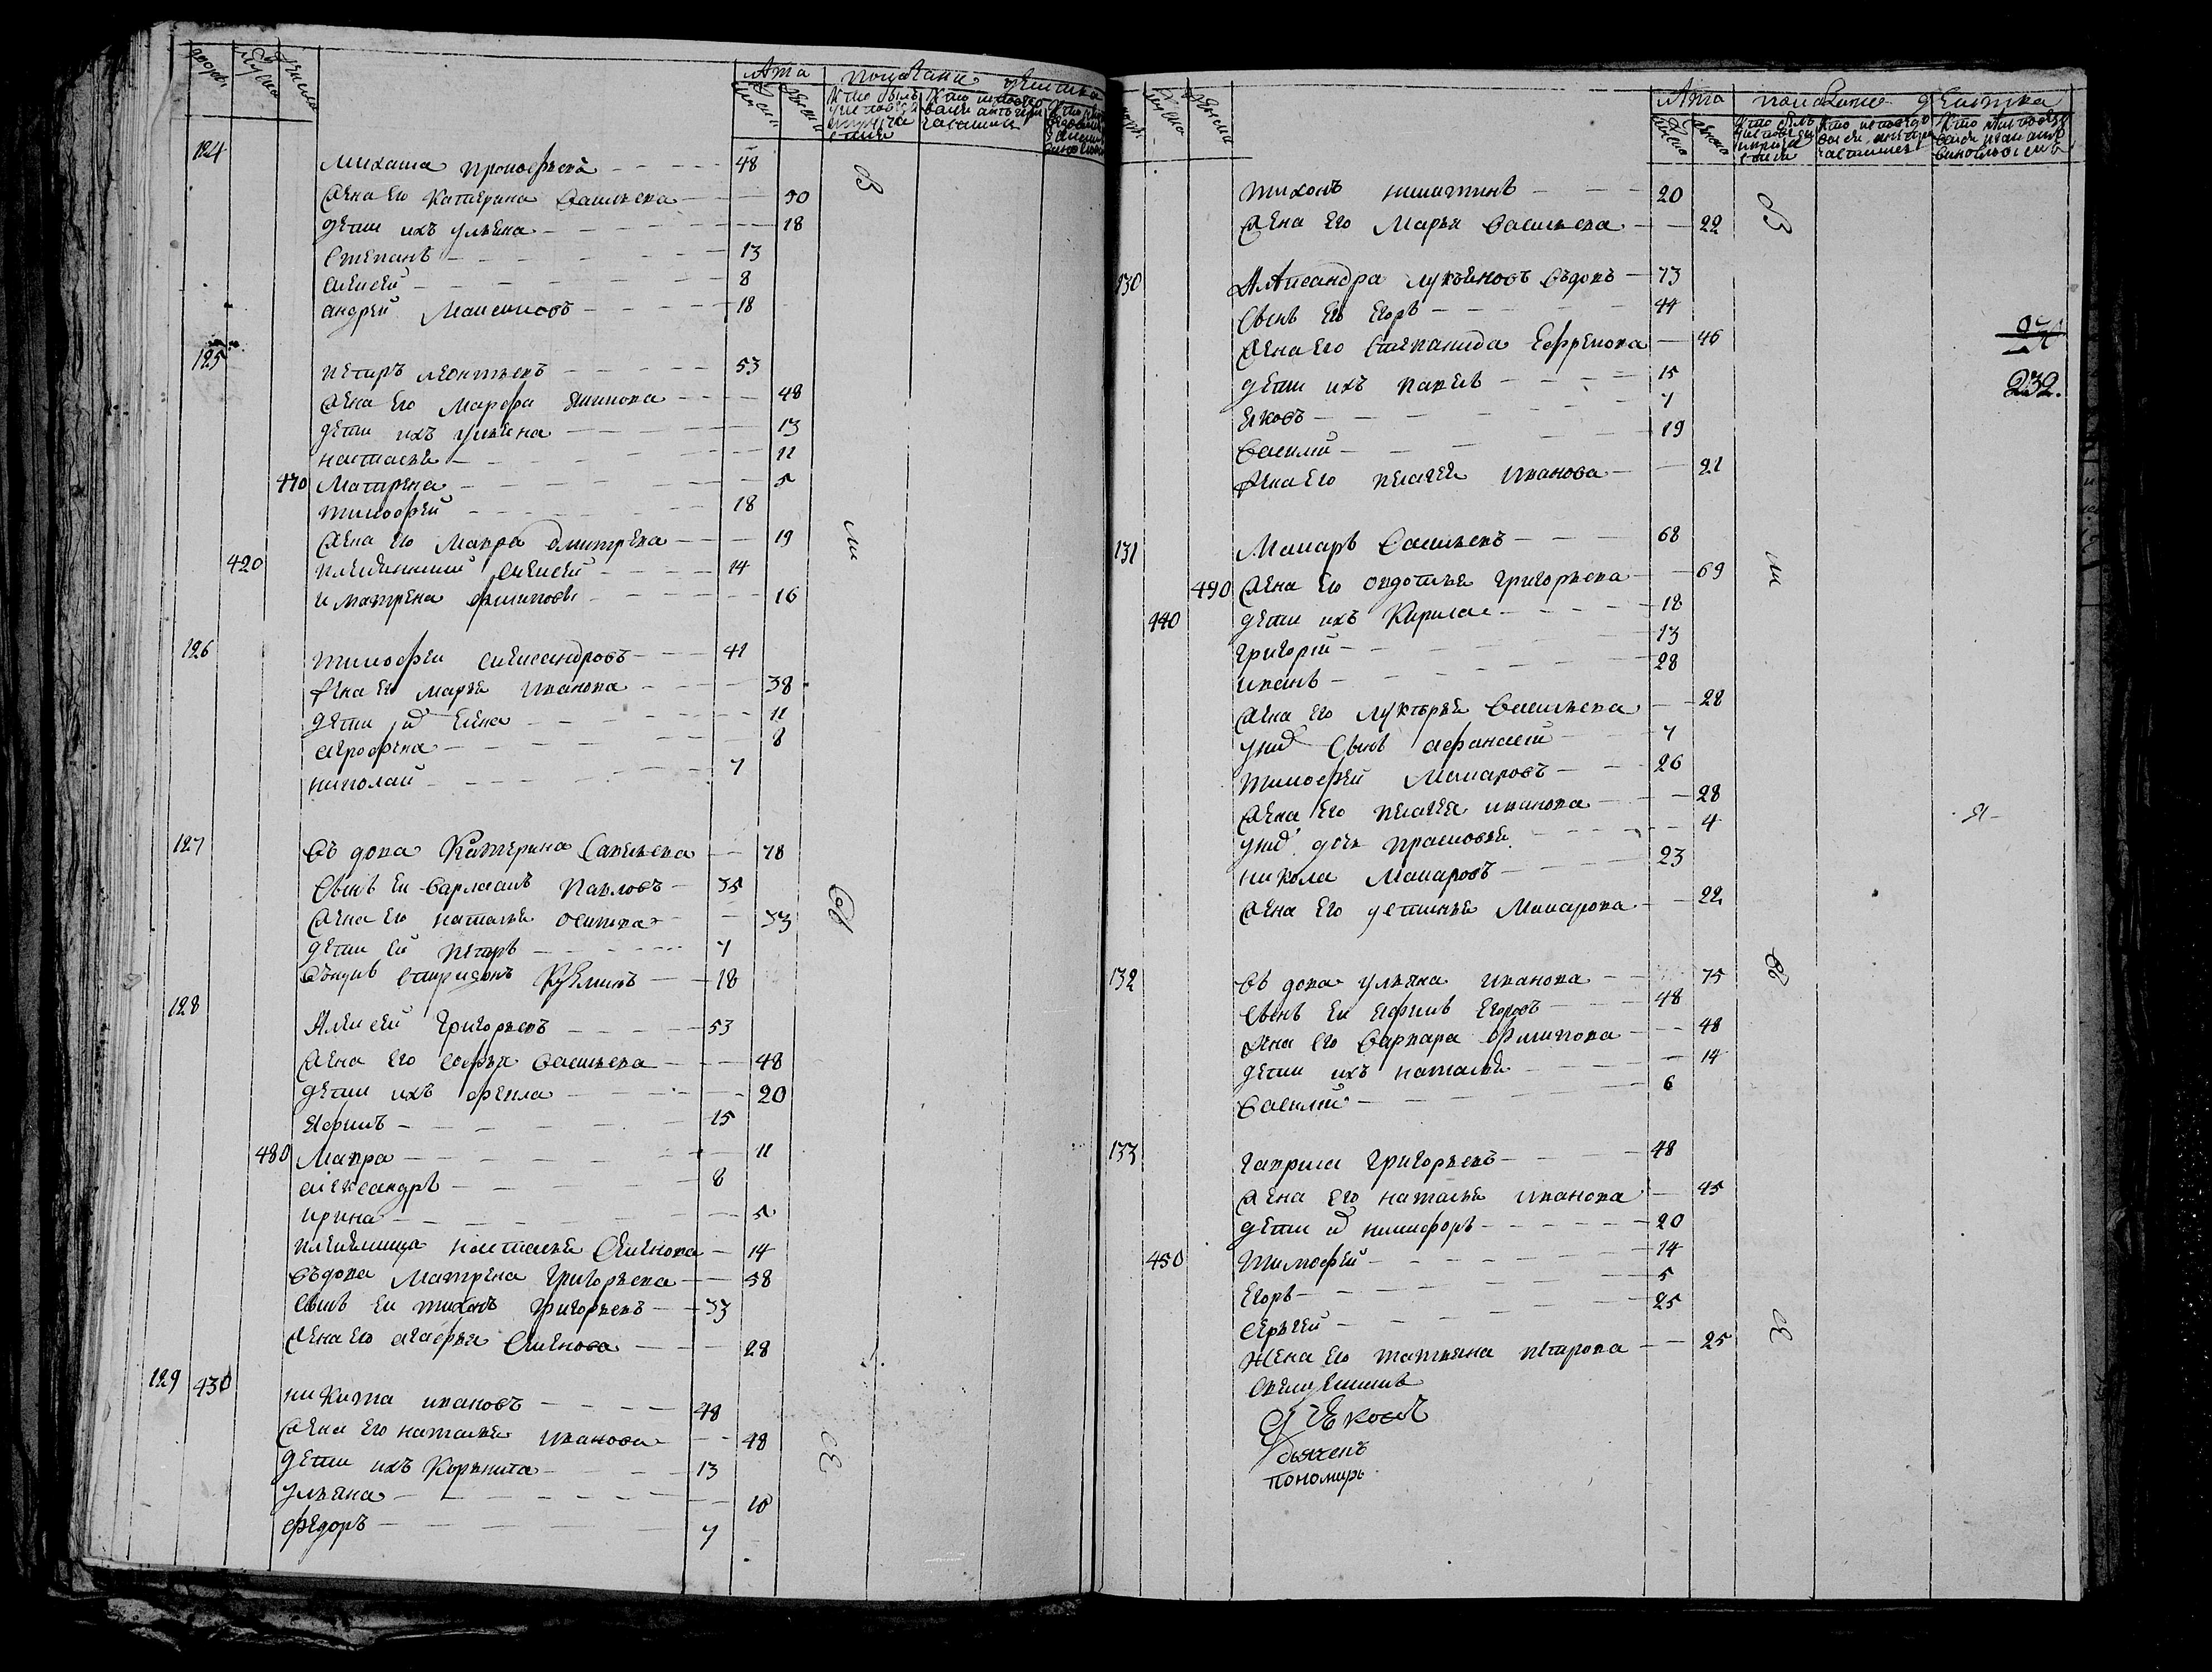 дворы
мужска
женска
Лета
мужск
женск
показани действа
124 Михаила прокофьевъ 48
Жена Его Катерина Васильева 50
дети ихъ ульяна 18
Степанъ 13
алексей 8
андрей Максимовъ 18
125 петръ леонтьевъ 53
Жена Его Марфа якимова 48
дети ихъ ульяна 13
настасья 11
470 Матрена 5
тимофей 18
Жена его Мавра дмитрева 19
420 племянники алексей 14
и матрена филипови 16
126 тимофеи александровъ 41
Жена Его марья иванова 38
дети их Елена 11
афросена 8
николай 7
127 въдова Катерина Савельева 78
Сынъ Еи варлаамъ павловъ 35
Жена Его наталья осипова 33
дети Еи петръ 7
внукъ спиридонъ Кузминъ 18
128 Алексей григорьевъ 53
Жена Его софья васильева 48
дети ихъ фекла 20
Яфимъ 15
480 Мавра 11
александръ 8
ирина 5
племянница настасья Семенова 14
въдова Матрена григорьева 58
Сынъ Еи тихонъ григорьевъ 33
Жена Его агафья Семенова 28
129 430 никита ивановъ 48
Жена Его наталья иванова 48
дети ихъ Корьнила 13
ульяна 10
федоръ 7
Лета
мужска
женска
показание действа
тихонъ никитинъ 20
Жена Его Марья васильева 22
130 Александра лукьяновъ въдовъ 73
Сынъ Его Егоръ 44
Жена Его степанида Ефремова 46
дети ихъ павелъ 15
Яковъ 7
василий 19
Жена Его пелагея иванова 21
232.
131 Макаръ васильевъ 68
490 Жена Его авдотья григорьева 69
440 дети ихъ Карила 18
григорий 13
иванъ 28
Жена Его лукерья васильева 28
у них сынъ афанасей 7
тимофей Макаровъ 26
Жена Его пелагея иванова 28
у них дочь прасковья 4
никола Макаровъ 23
Жена Его устинья Макарова 22
132 въдова ульяна иванова 75
Сынъ Еи Яфимъ Егоровъ 48
Жена Его варвара филипова 48
дети ихъ наталья 14
василий 6
133 гаврила григорьевъ 48
Жена Его наталья иванова 45
дети их никифоръ 20
450 тимофей 14
Егоръ 5
сергей 25
Жена Его татьяна петрова 25
дьячекъ
пономарь